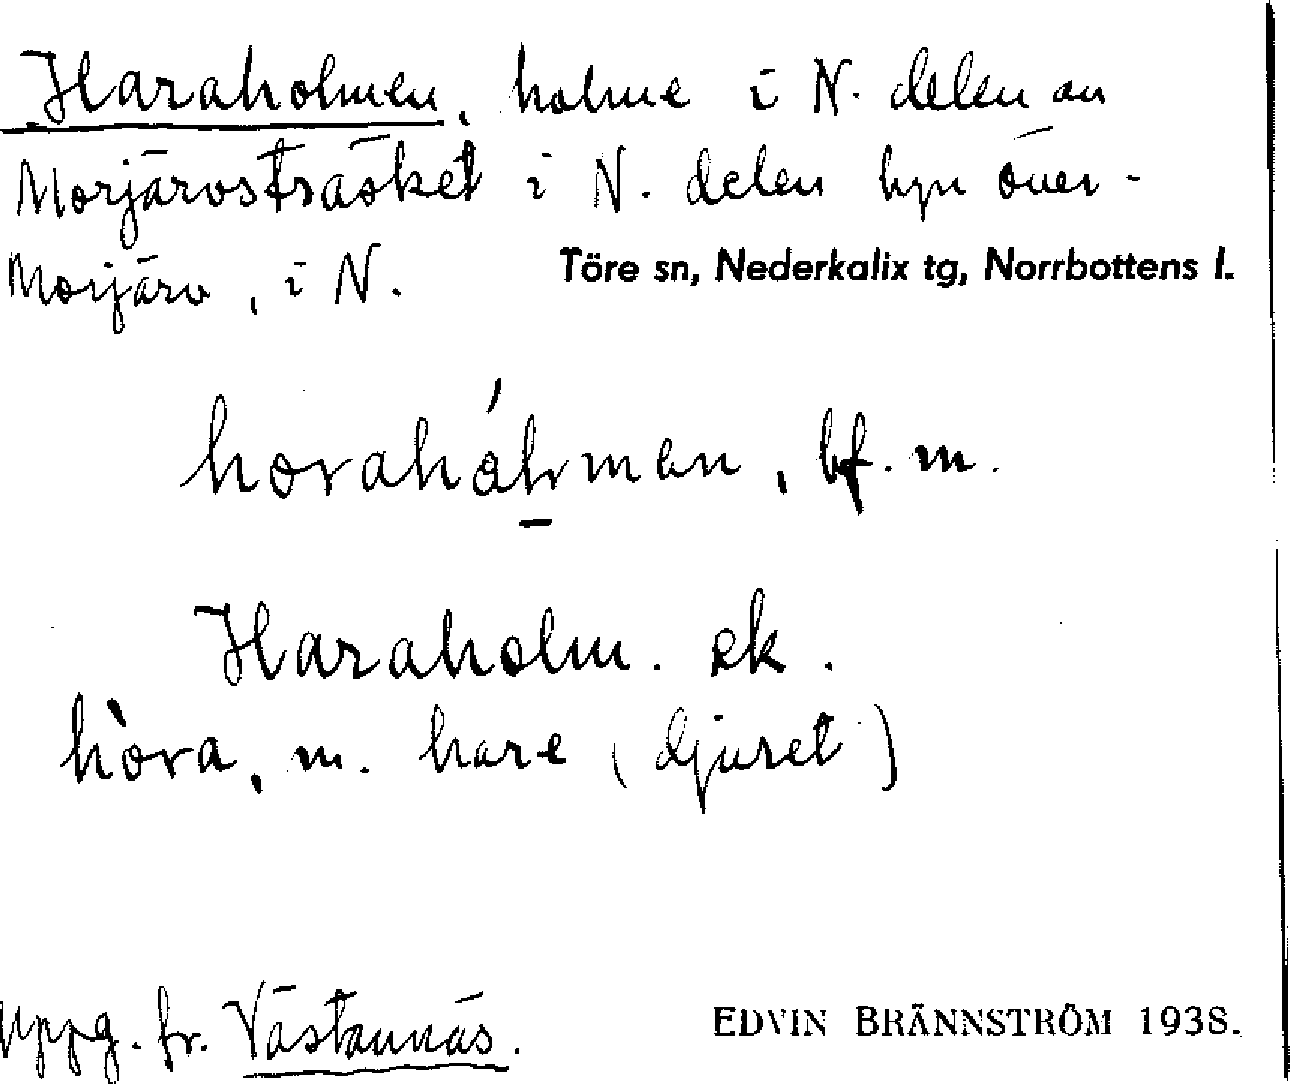 Haraholmen, holme i N. delen av
Morjärvsträsket i N. delen byn Över-
Morjärv, i N. Töre sn, Nederkalix tg, Norrbottens l.
bf. m.
Haraholm. ek.
m. hare (djuret)
Uppg. fr. Västannäs.
EDVIN BRÄNNSTRÖM 1938.